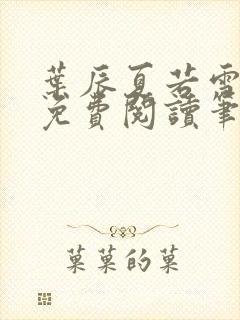 葉辰夏若雪
免費閱讀筆
菓菓的菓